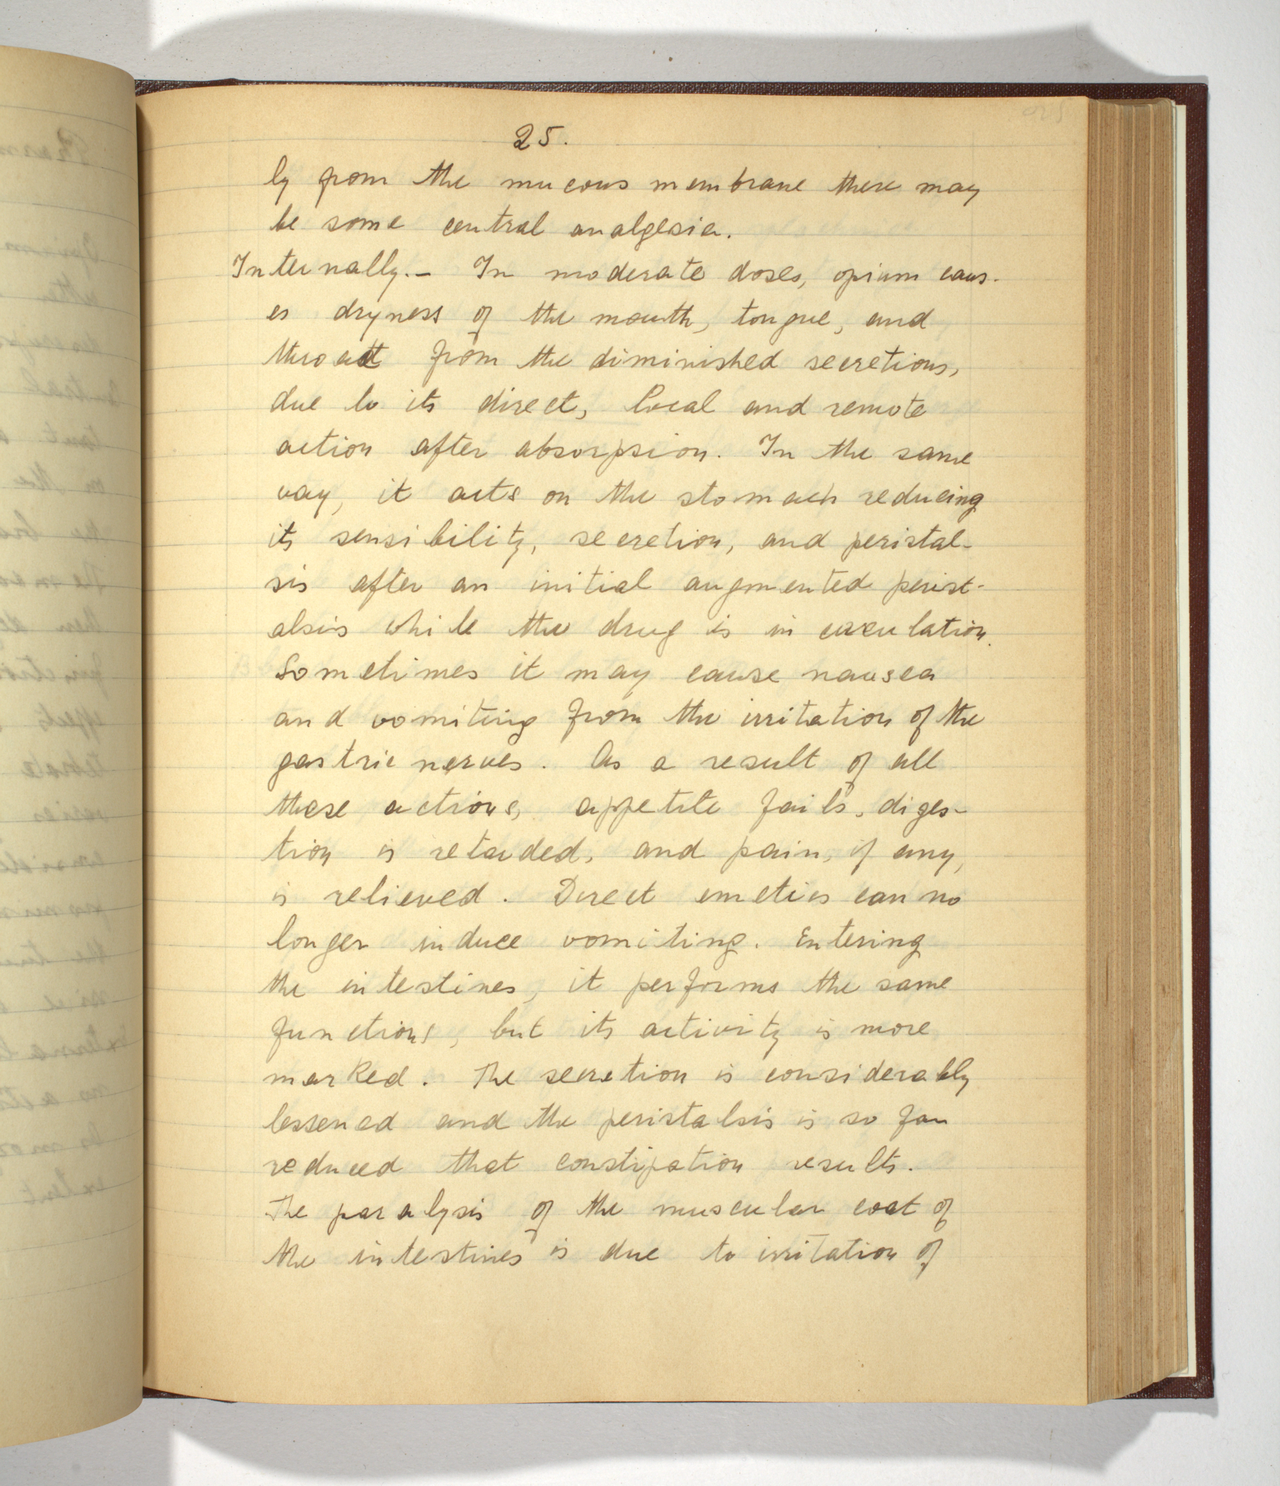 25.
ly from the mucous membrane there may
be some central analgesia.
Internally.- In moderate doses, opium caus-
es dryness of the mouth, tongue, and
throat from the diminished secretions,
due to its direct, local and remote
action after absorpsion. In the same
way, it acts on the stomach reducing
its sensibility, secretion, and peristal-
sis after an initial augmented perist-
alsis while the drug is in circulation.
Sometimes it may cause nausea
and vomiting from the irritation of the
gastric nerves. As a result of all
these actions, appetite fails, diges-
tion is retarded, and pain, if any,
is relieved. Direct emetics can no
longer induce vomiting. Entering
the intestines, it performs the same
functions, but its activity is more
marked. The secretion is considerably
lessened and the peristalsis is so far
reduced that constipation results.
The paralysis of the muscular coat of
the intestines is due to irritation of